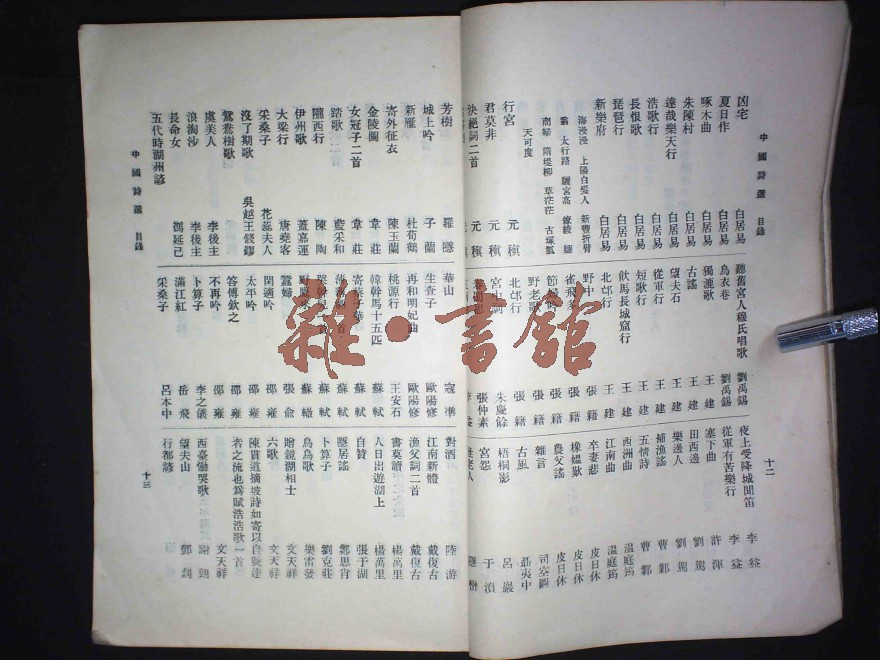 中國詩選 目錄
十二
凶宅 白居易
夏日作 白居易
啄木曲 白居易
朱陳村 白居易
達哉樂天行 白居易
浩歌行 白居易
長恨歌 白居易
琵琶行 白居易
新樂府 白居易
海漫漫 上陽白髮人 新豐折臂
翁 太行路 驪宮高 繚綾 鹽
商婦 隋堤柳 草茫茫 古塚狐
天可度
行宮 元稹
君莫非 元稹
決絕詞二首 元稹
聽舊宮人穆氏唱歌 劉禹錫
烏衣巷 劉禹錫
獨漉歌 王建
古謠 王建
望夫石 王建
從軍行 王建
短歌行 王建
飲馬長城窟行 王建
北邙行 王建
野中 張籍
雀飛 張籍
節婦吟 張籍
野老歌 張籍
北邙行 張籍
宮中詞 朱慶餘
張仲素
夜上受降城聞笛 李益
從軍有苦樂行 李益
塞下曲 許渾
田西邊 劉駕
樂邊人 劉駕
補漁謠 曹鄴
五情詩 曹鄴
西洲曲 溫庭筠
江南曲 溫庭筠
卒妻悲 皮日休
橡媼歎 皮日休
農父謠 皮日休
雜言 司空圖
古風 聶夷中
梧桐影 呂巖
宮怨 于濆
芳樹 羅隱
城上吟 子蘭
新雁 杜荀鶴
寄外征衣 陳玉蘭
金陵圖 韋莊
女冠子二首 韋莊
踏歌 藍采和
隴西行 陳陶
伊州歌 蓋嘉運
大梁行 唐堯客
采桑子 花蕊夫人
沒了期歌
鴛鴦樹歌 吳越王錢鏐
虞美人 李後主
浪淘沙 李後主
長命女 馮延己
五代時湖州諺
華山 寇準
生查子 歐陽修
再和明妃曲 歐陽修
桃源行 王安石
韓幹馬十五匹 蘇軾
蘇軾
蘇軾
蘇軾
蘇軾
蠶婦 張俞
閑適吟 邵雍
太平吟 邵雍
答傅欽之 邵雍
不再吟 邵雍
卜算子 李之儀
滿江紅 岳飛
采桑子 呂本中
對酒 陸游
江南新體 戴復古
漁父詞二首 戴復古
書莫讀 楊萬里
人日出遊湖上 楊萬里
自贊 張于湖
隱居謠 鄭思肖
卜算子 劉克莊
烏烏歌 樂雷發
贈鏡湖相士 文天祥
六歌 文天祥
陳貫道摘坡詩如寄以自號達
者之流也爲賦浩浩歌一首 文天祥
西臺慟哭歌 謝翱
望夫山
行都諺
中國詩選 目錄
十三
雜·書館